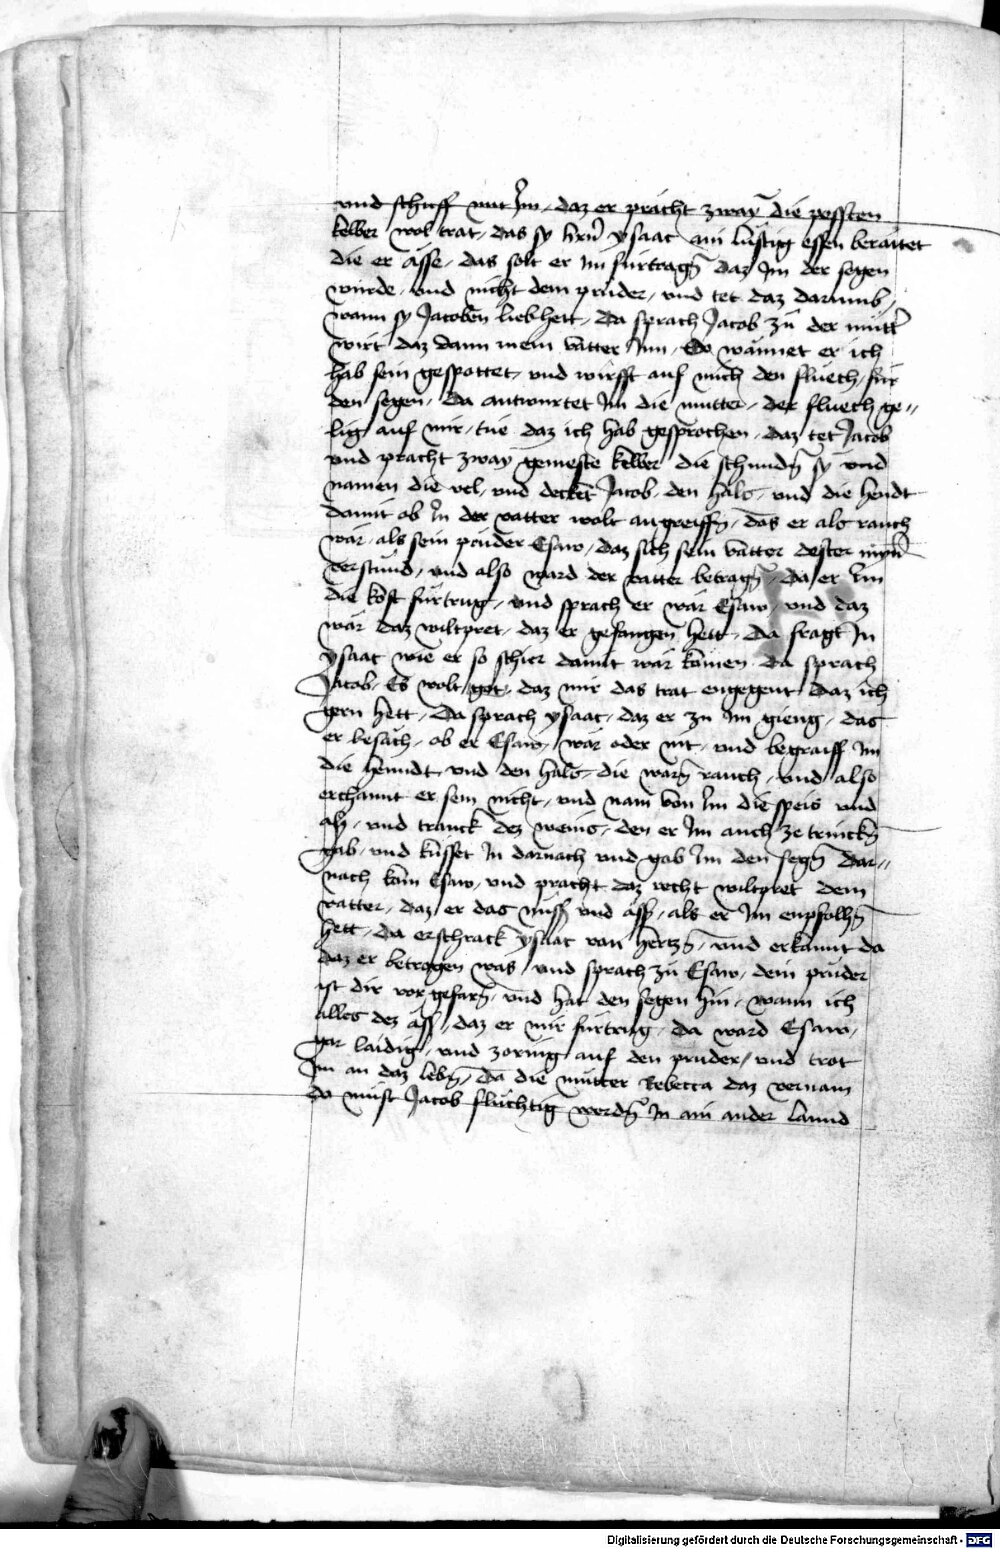 und schueff mit Im, daz er pracht zway die pessten
kelber wol trat, das sy hrn ysaac ain lustig essen beraitet
die er ässe, das solt er Im fürtragn daz Im der segen
würde, und nicht dem pruder, und tet daz darumb,
wann sy Jacoben lieb hett, Da sprach Jacob zu der mutter
wirt daz dann mein vatter Inn, So wännet er ich
hab sein gespottet, und wirfft auf mich den fluech, für
den segen, Da antwurtet Im die mutter, der fluech ge-
lig auf mir, tue daz ich hab gesprochen, daz tet Jacob
und pracht zway gemeste kelber die schundn sy und
namen die vel, und decket Jacob, den hals, und die hendt
damit ob In der vatter wolt angreiffn, das er als rauch
wär, als sein pruder Esaw, daz sich sein vatter dester mynn
verstund, und also ward der vatter betragn, Da er Im
die kost fürtrug, und sprach er wär Esaw, und daz
wär daz wiltpret, daz er gefangen hett, Da fragt In
ysaac wie er so schier damit wär komen Da sprach
Jacob, Es wolt got, daz mir das trat engegent Daz ich
gern hett, Da sprach ysaac, daz er zu Im gieng, das
er besäch, ob er Esaw, wär oder nit, und begraiff Im
die henndt und den hals, die warn rauch, und also
erchannt er sein nicht, und nam von Im die speis und
aß, und tranck dez weins, den er Im auch ze trinckn
gab, und küsset In darnach und gab Im den segn Dar-
nach kam Esaw, und pracht daz recht wiltpret dem
vatter, daz er das nüss und äss, als er Im enpfolhn
hett, Da erschrack ysaac van hertzn, und erkannt da
daz er betrogen was, und sprach zu Esaw, dein pruder
ist dir vor gefarn, und hat den segen hin, wann ich
alles dez äss, daz er mir fürtrug, Da ward Esaw,
gar laidig, und zornig auf den pruder, und trot
Im an daz lebn, Da die mutter Rebecca daz vernam
Do must Jacob fluchtig werdn In ain ander lannd
Digitalisierung gefördert durch die Deutsche Forschungsgemeinschaft - DFG